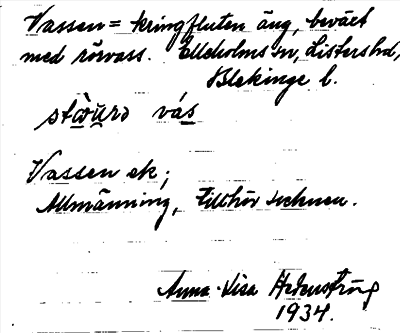 Vassen = kringfluten äng, beväxt
med rörvass. Elleholms sn, Listers hd,
Blekinge l.
stẁurə vás
Vassen ek;
Allmänning, tillhör socknen.
Anna-Lisa
1934.